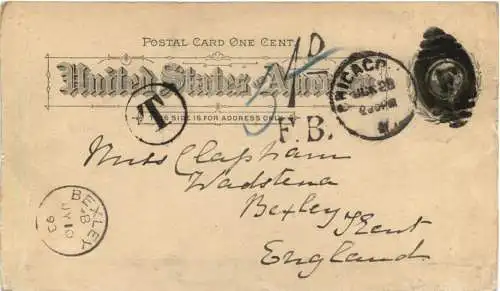 POSTAL CARD ONE CENT.
United States of America
THIS SIDE IS FOR ADDRESS ONLY
T
1D
F.B.
CHICAGO
BEXLEY
JY 10
93
Miss Clapham
Wadstena
Bexley Kent
England